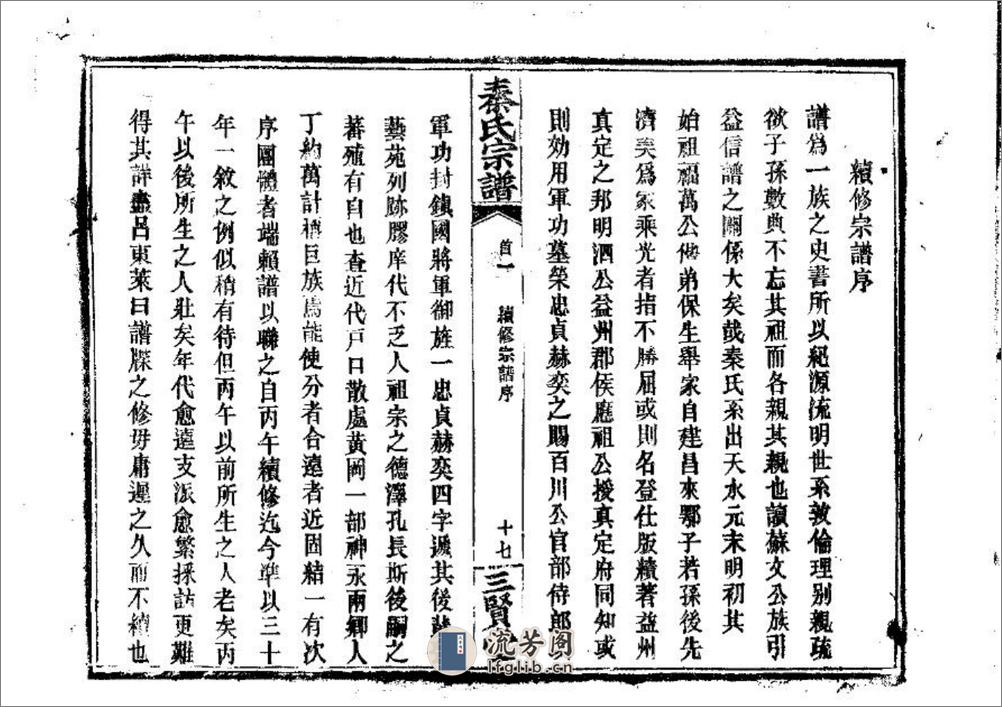 續修宗譜序
譜爲一族之史書所以紀源流明世系敦倫理别親疏
欲子孫數典不忘其祖而各親其親也讀蘇文公族引
益信譜之關係大矣哉秦氏系出天水元末明初其
始祖福萬公偕弟保生舉家自建昌來鄂子若孫後先
濟美爲家乘光者指不勝屈或則名登仕版績著益州
真定之邦明泗公益州郡侯應祖公授真定府同知或
則効用軍功墓榮忠貞赫奕之賜百川公官部侍郎
秦氏宗譜
首一
續修宗譜序
十七
三賢
軍功封鎮國將軍御旌一忠貞赫奕四字遞其後
藝苑列跡膠庠代不乏人祖宗之德澤孔長斯後嗣之
蕃殖有自也查近代戶口散處黃岡一部神永兩鄉人
丁約萬計稱巨族焉能使分者合遠者近固結一有次
序團體者端賴譜以聯之自丙午續修迄今準以三十
年一敘之例似稍有待但丙午以前所生之人老矣丙
午以後所生之人壯矣年代愈遠支派愈繁採訪更難
得其詳盡呂東萊曰譜牒之修毋庸遲之久而不續也
流芳图
lfglib.cn